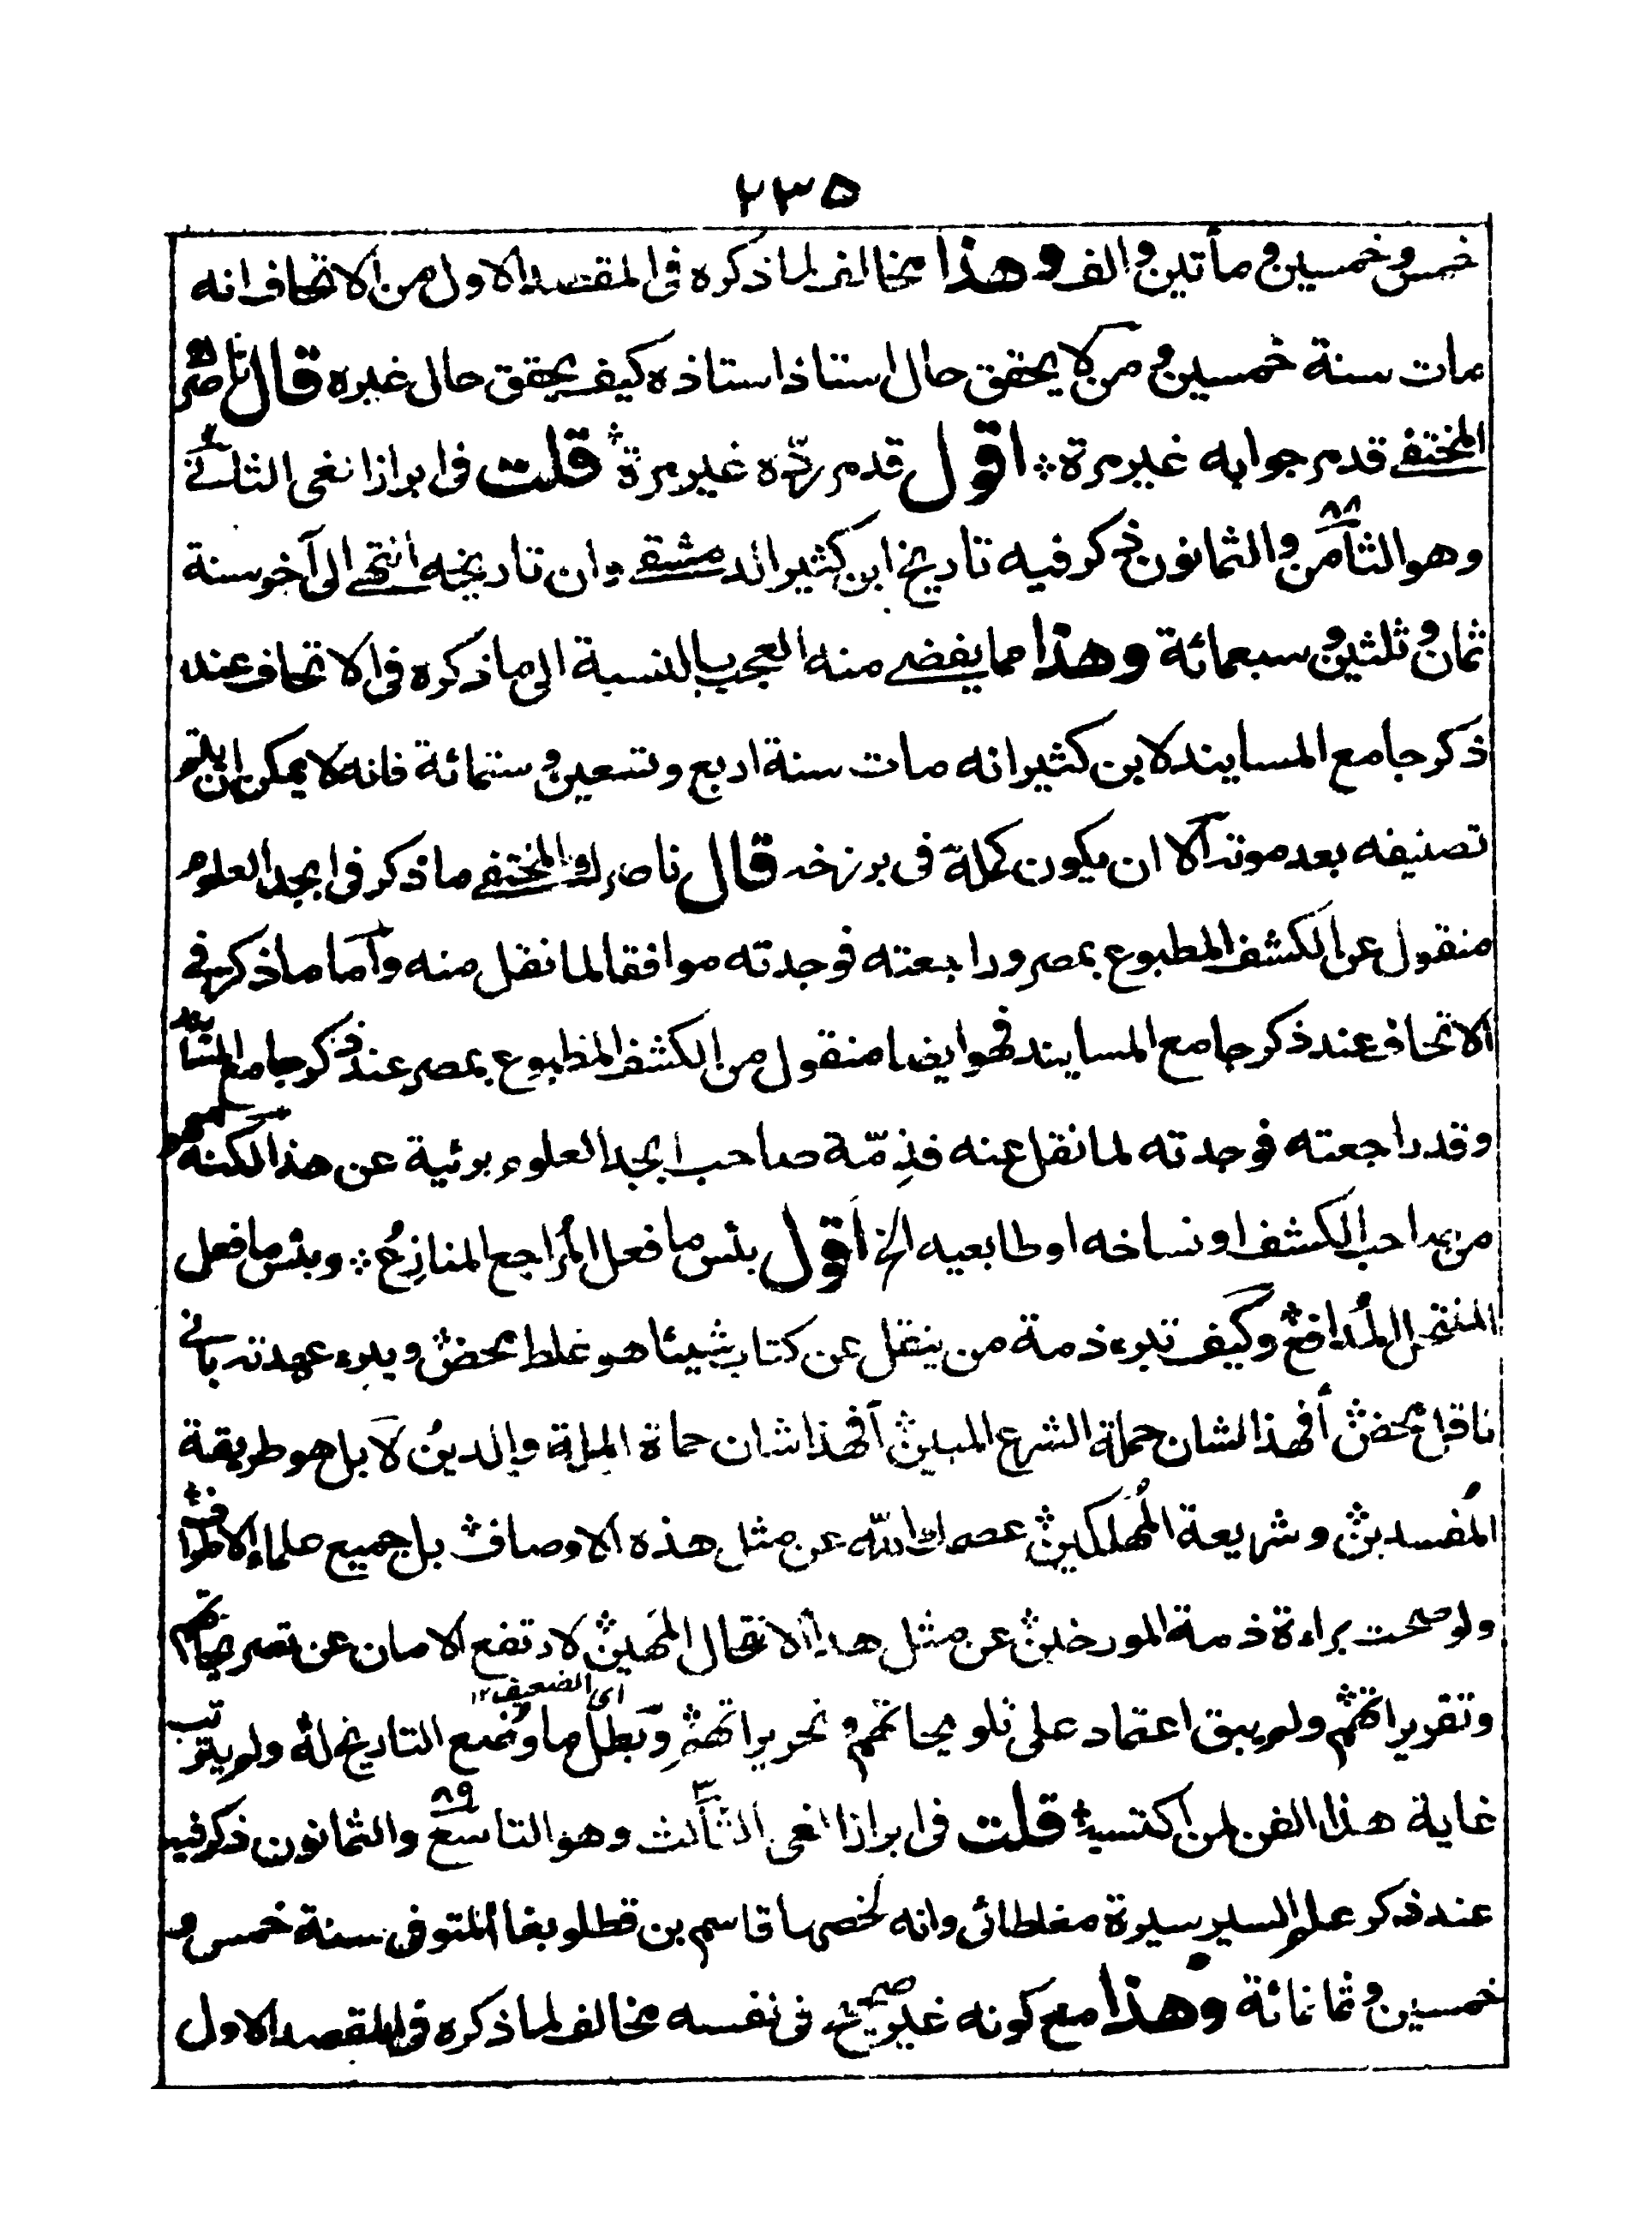 ٢٣٥
خمس وخمسين ومأتين والف وهذا مخالف لما ذكره فى المقصد الاول من الاتحاف انه
مات سنة خمسين و من لا يحقق حال استاذ استاذه كيف يحقق حال غيره قال ناصر
المختفے قد مر جوابه غير مرة ؞ اقول قد مر ردّه غير مرة ؞ قلت فى ابراز الغى الثانے
وهو الثامن والثمانون ٨٨ ذكر فيه تاريخ ابن كثير الدمشقے وان تاريخه انتهے الى آخر سنة
ثمان وثلثين وسبعمائة وهذا مما يفضے منه العجب بالنسبة الى ما ذكره فى الاتحاف عند
ذكر جامع المسايند لابن كثير انه مات سنة اربع وتسعين وستمائة فانه لا يمكن ان يكون
تصنيفه بعد موته الا ان يكون كمله فى برزخه قال ناصرك المختفے ما ذكر فى ابجد العلوم
منقول عن الكشف المطبوع بمصر وراجعته فوجدته موافقا لما نقل منه وأما ما ذكره فى
الاتحاف عند ذكر جامع المسايند فهو ايضا منقول من الكشف المطبوع بمصر عند ذكر جامع المسايند
وقد راجعته فوجدته لما نقل عنه فذِمّة صاحب ابجد العلوم برئية عن هذا لكنه
من صاحب الكشف او نساخه او طابعيه الخ اقول بئس ما فعل المُراجع المنازِعُ ؞ وبئس ما فعل
المنتحل المُدافع ؞ وكيف تبرء ذمة من ينقل عن كتاب شيئا هو غلط محض ؞ ويبرء عهدته بانے
ناقل محض ؞ أفهذا لشان حملة الشرع المبين ؞ أفهذا شان حماة الملة والدين لَا بل هو طريقة
المُفسدين ؞ وشريعة المُهلكين ؞ عصمك الله عن مثل هذه الاوصاف ؞ بل جميع علماء الاطراف ؞
ولو صحت براءة ذمة المورخين ؞ عن مثل هذا الانتحال المَهين ؞ لارتفع الامان عن تصريحاتهم ؞
وتقريراتهم ؞ ولم يبق اعتماد على تلويحاتهم وتحريراتهم ؞ وبَطَل ما وُضع التاريخ له ولم يترتب
اى الضعيف ١٢
غاية هذا الفن لمن اكتسبه ؞ قلت فى ابراز الغى الثالث وهو التاسع ٨٩ والثمانون ذكر فيه
عند ذكر علم السير سيرة مغلطائى وانه لخصها قاسم بن قطلوبغا المتوفى سنة خمس و
خمسين وثمانمائة وهذا مع كونه غير صحيح فى نفسه مخالف لما ذكره فى المقصد الاول